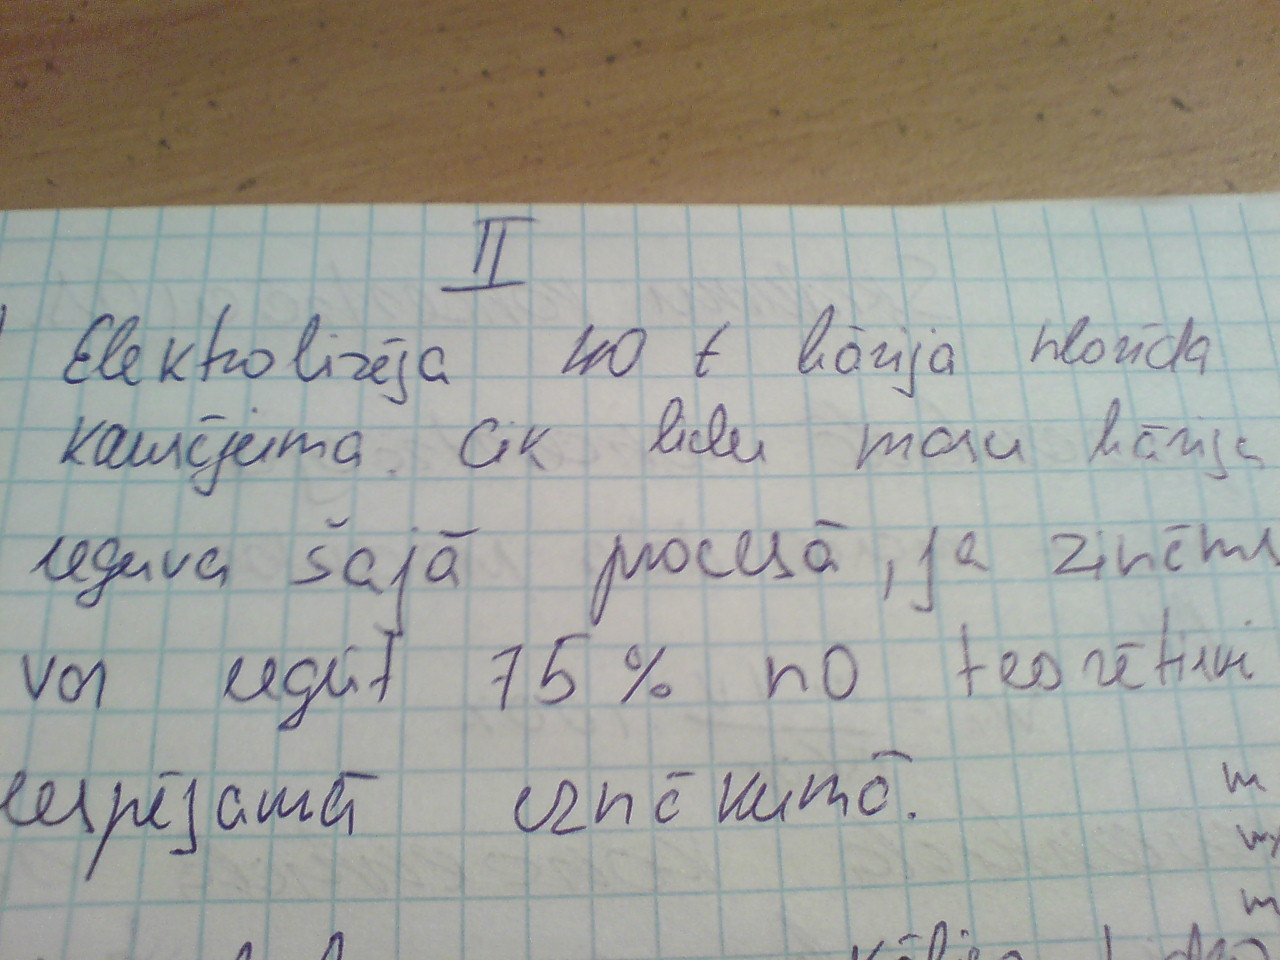 II
Elektrolizēja 40 t bārija hlorīda
kausējuma. Cik lielu masu bārija
ieguva šajā procesā, ja zināms
var iegūt 75% no teorētiski
iespējamā iznākuma.
m
m
m